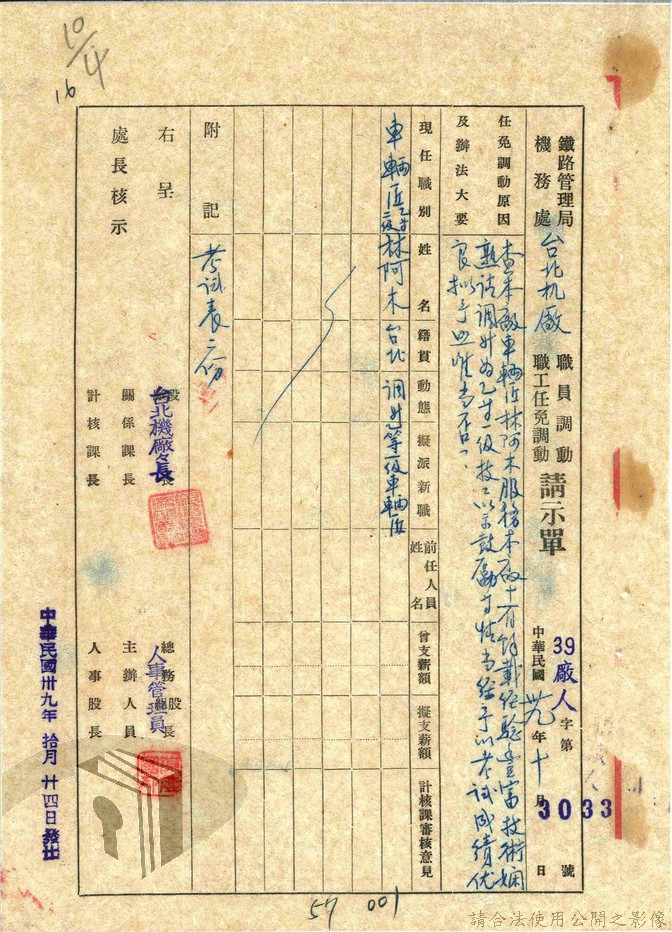 鐵路管理局
機務處
台北机廠
職員調動
職工任免調動
請示單
39廠人字第3033號
中華民國卅九年十月 日
任免調動原因
及辦法大要
查本廠車輛匠林阿木服務本廠十有餘載經驗豐富技術嫻
熟請調升為乙等一級技工以示鼓勵等情當經予以考試成績优
良拟予照准當否？
現任職別
姓名
籍貫
動態
擬派新職
前任人員
姓名
曾支薪額
擬支薪額
計核課審核意見
車輛匠
乙等
二級
林阿木
台北
調升
乙等一級車輛匠
附記
考試表二份
右呈
處長核示
台北機廠廠長
關係課長
計核課長
總務股長
人事管理員
主辦人員
人事股長
中華民國卅九年拾月廿四日發出
10/4
16
57 001
請合法使用公開之影像